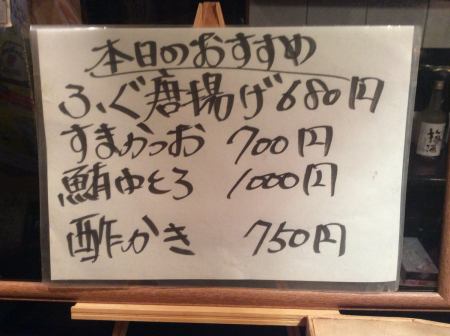 本日のおすすめ
ふぐ唐揚げ680円
すまかつお 700円
鮪中とろ 1000円
酢かき 750円
梅酒